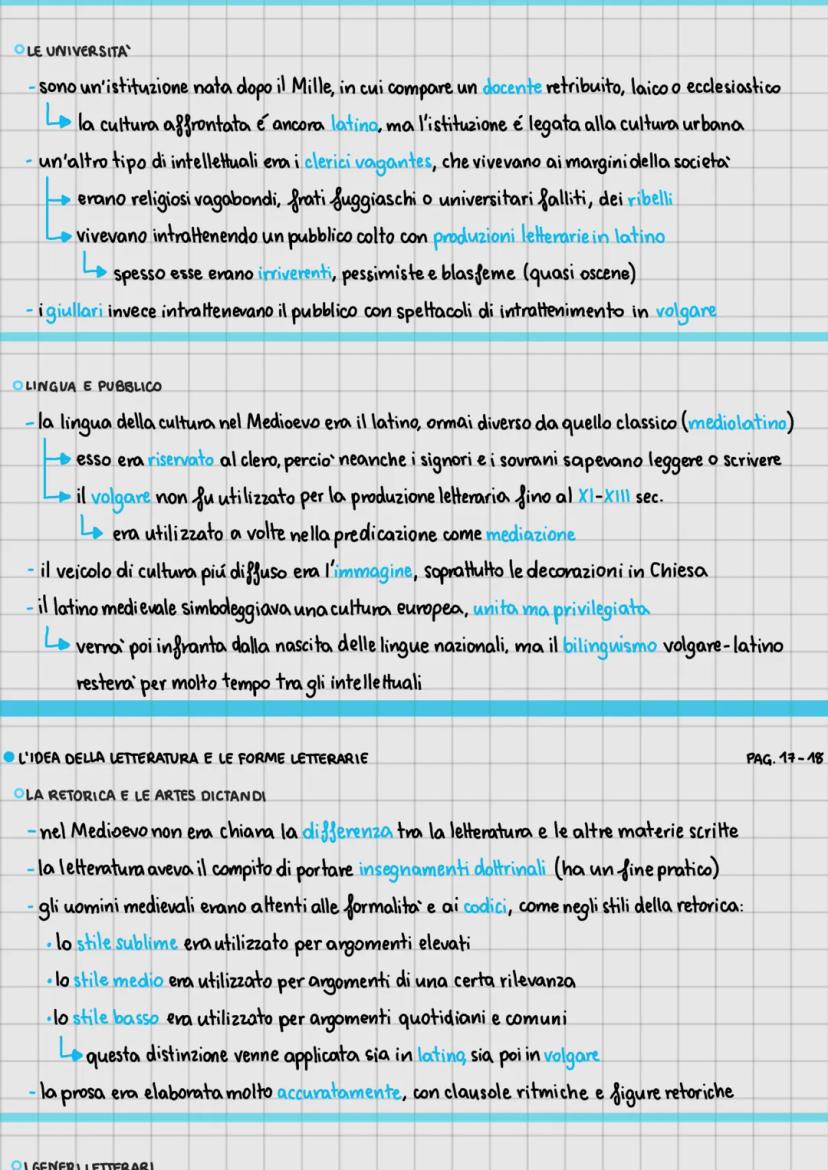 LE UNIVERSITA'
- sono un'istituzione nata dopo il Mille, in cui compare un docente retribuito, laico o ecclesiastico
la cultura affrontata é ancora latina, ma l'istituzione é legata alla cultura urbana
- un'altro tipo di intellettuali era i clerici vagantes, che vivevano ai margini della societa'
erano religiosi vagabondi, frati fuggiaschi o universitari falliti, dei ribelli
vivevano intrattenendo un pubblico colto con produzioni letterarie in latino
spesso esse erano irriverenti, pessimiste e blasfeme (quasi oscene)
- i giullari invece intrattenevano il pubblico con spettacoli di intrattenimento in volgare
LINGUA E PUBBLICO
- la lingua della cultura nel Medioevo era il latino, ormai diverso da quello classico (mediolatino)
esso era riservato al clero, percio' neanche i signori e i sovrani sapevano leggere o scrivere
il volgare non fu utilizzato per la produzione letteraria fino al XI-XIII sec.
era utilizzato a volte nella predicazione come mediazione
- il veicolo di cultura piú diffuso era l'immagine, soprattutto le decorazioni in Chiesa
- il latino medievale simboleggiava una cultura europea, unita ma privilegiata
verra' poi infranta dalla nascita delle lingue nazionali, ma il bilinguismo volgare-latino
restera' per molto tempo tra gli intellettuali
L'IDEA DELLA LETTERATURA E LE FORME LETTERARIE PAG. 17-18
LA RETORICA E LE ARTES DICTANDI
- nel Medioevo non era chiara la differenza tra la letteratura e le altre materie scritte
- la letteratura aveva il compito di portare insegnamenti dottrinali (ha un fine pratico)
- gli uomini medievali erano attenti alle formalita' e ai codici, come negli stili della retorica:
• lo stile sublime era utilizzato per argomenti elevati
• lo stile medio era utilizzato per argomenti di una certa rilevanza
• lo stile basso era utilizzato per argomenti quotidiani e comuni
questa distinzione venne applicata sia in latino, sia poi in volgare
- la prosa era elaborata molto accuratamente, con clausole ritmiche e figure retoriche
I GENERI LETTERARI